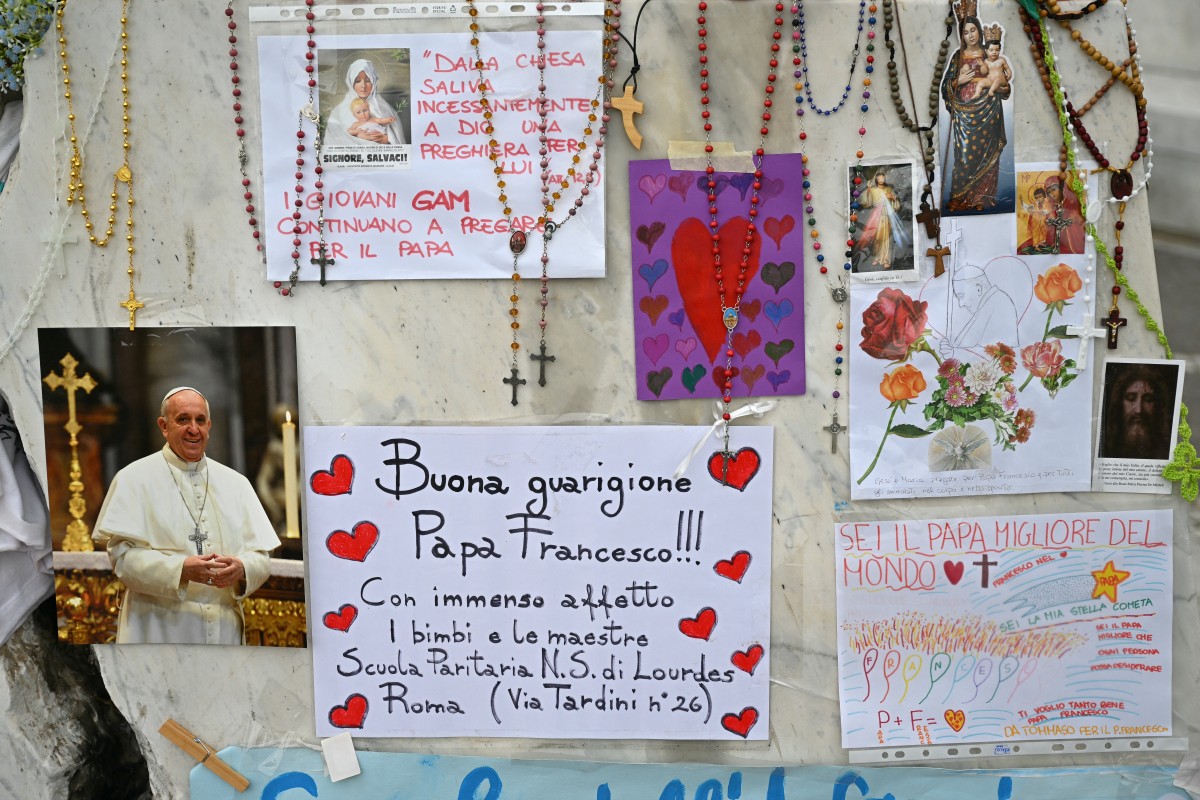 "DALLA CHIESA
SALIVA
INCESSANTEMENTE
A DIO UNA
PREGHIERA PER
LUI
SIGNORE, SALVACI!
I GIOVANI GAM
CONTINUANO A PREGARE
PER IL PAPA
Buona guarigione
Papa Francesco!!!
Con immenso affetto
I bimbi e le maestre
Scuola Paritaria N.S. di Lourdes
Roma (Via Tardini n° 26)
SEI IL PAPA MIGLIORE DEL
MONDO
FRANCESCO NEL
PAPA
SEI LA MIA STELLA COMETA
SEI IL PAPA
MIGLIORE CHE
OGNI PERSONA
POSSA DESIDERARE
FRANCESCO
P + F =
TI VOGLIO TANTO BENE
PAPA FRANCESCO
DA TOMMASO PER IL P. FRANCESCO